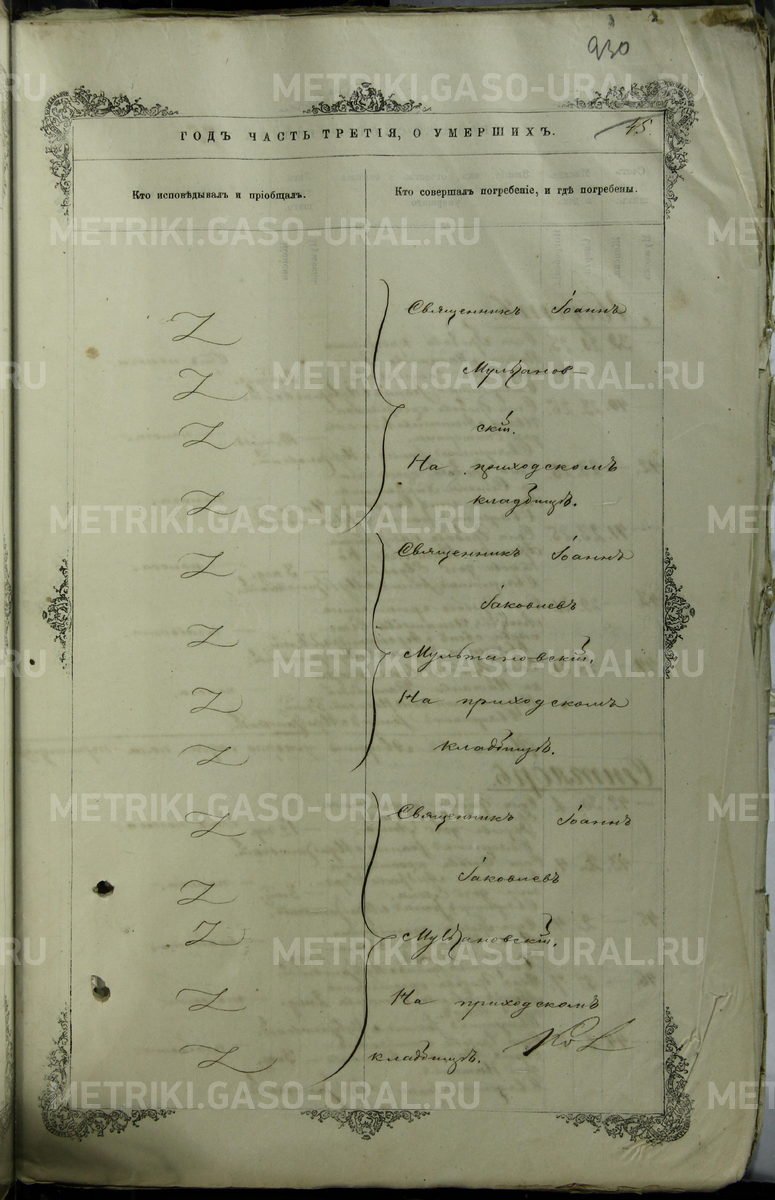 930
ГОДЪ ЧАСТЬ ТРЕТІЯ, О УМЕРШИХЪ.
45.
Кто исповѣдывалъ и пріобщалъ.
Кто совершалъ погребеніе, и гдѣ погребены.
Священникъ Іоаннъ
Мультанов-
скій.
На приходскомъ
кладбищѣ.
Священникъ Іоаннъ
Іаковлевъ
Мультановскій.
На приходскомъ
кладбищѣ.
Священникъ Іоаннъ
Іаковлевъ
Мультановскій.
На приходскомъ
кладбищѣ.
METRIKI.GASO-URAL.RU